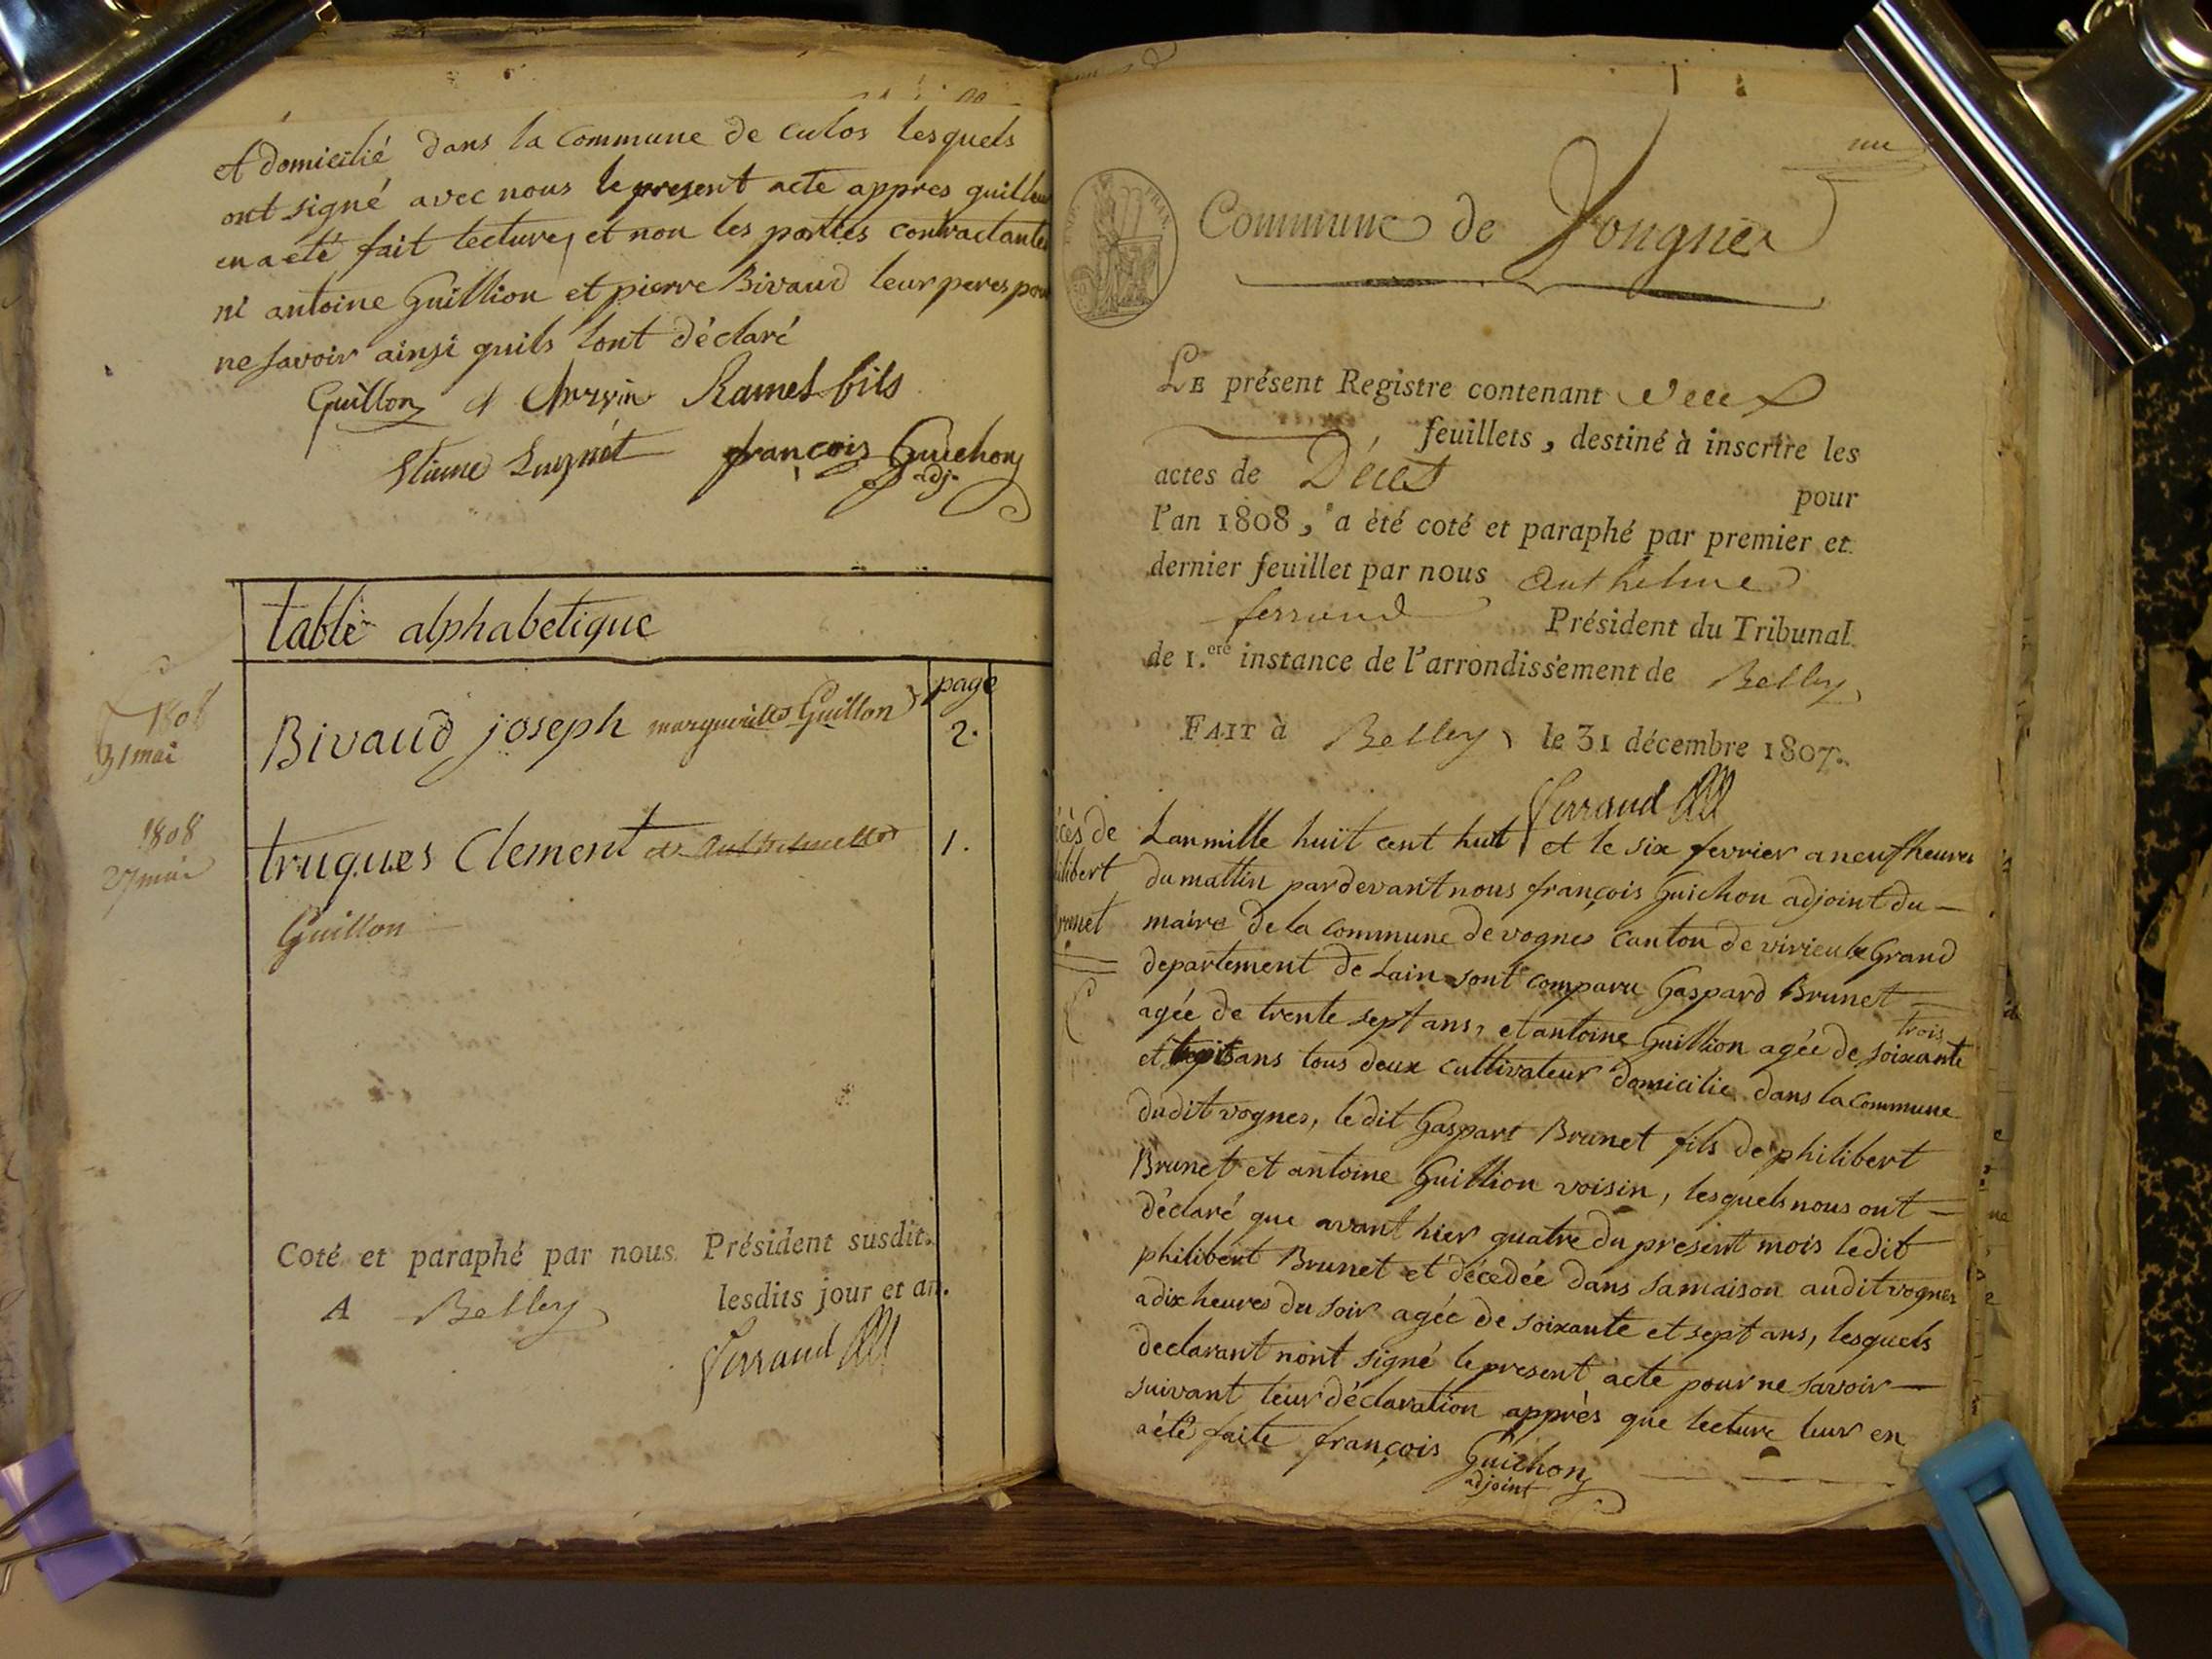 et domicilié dans la commune de culos lesquels
ont signé avec nous le present acte appres quil leur
en a eté fait lecture, et non les parties contractantes
ni antoine Guillion et pierre Bivaud leur peres pour
ne savoir ainsi quils lont déclaré
Guillon Ramel fils
Etiene françois Guichon
adj.
table alphabetique
page
1808
31 mai
Bivaud joseph margueritte Guillon
2.
1808
27 mai
truques Clement et
1.
Guillon
Coté et paraphé par nous Président susdit.
lesdits jour et an.
A Belley
Ferraud
un
EMP. FRAN.
Commune de Vongnes
LE présent Registre contenant deux
feuillets, destiné à inscrire les
actes de Décès
pour
l'an 1808, a été coté et paraphé par premier et
dernier feuillet par nous Anthelme
ferraud Président du Tribunal
de 1.ere instance de l'arrondissement de Belley
FAIT à Belley, le 31 décembre 1807.
Ferraud
écès de
ilibert
runet
Lan mille huit cent huit et le six fevrier a neuf heures
du mattin pardevant nous françois Guichon adjoint du
maire de la commune de vognes canton de virieu le Grand
departement de Lain sont comparu Gaspard Brunet
agée de trente sept ans, et antoine Guillion agée de soixante
trois
et ans tous deux cultivateur domicilie dans la commune
dudit vognes, le dit Gaspart Brunet fils de philibert
Brunet et antoine Guillion voisin, lesquels nous ont
déclaré que avant hier quatre du present mois ledit
philibert Brunet et décedée dans sa maison audit vognes
a dix heures du soir agée de soixante et sept ans, lesquels
declarant nont signé le present acte pour ne savoir
suivant leur déclaration apprès que lecture leur en
a été faite françois Guichon
adjoint